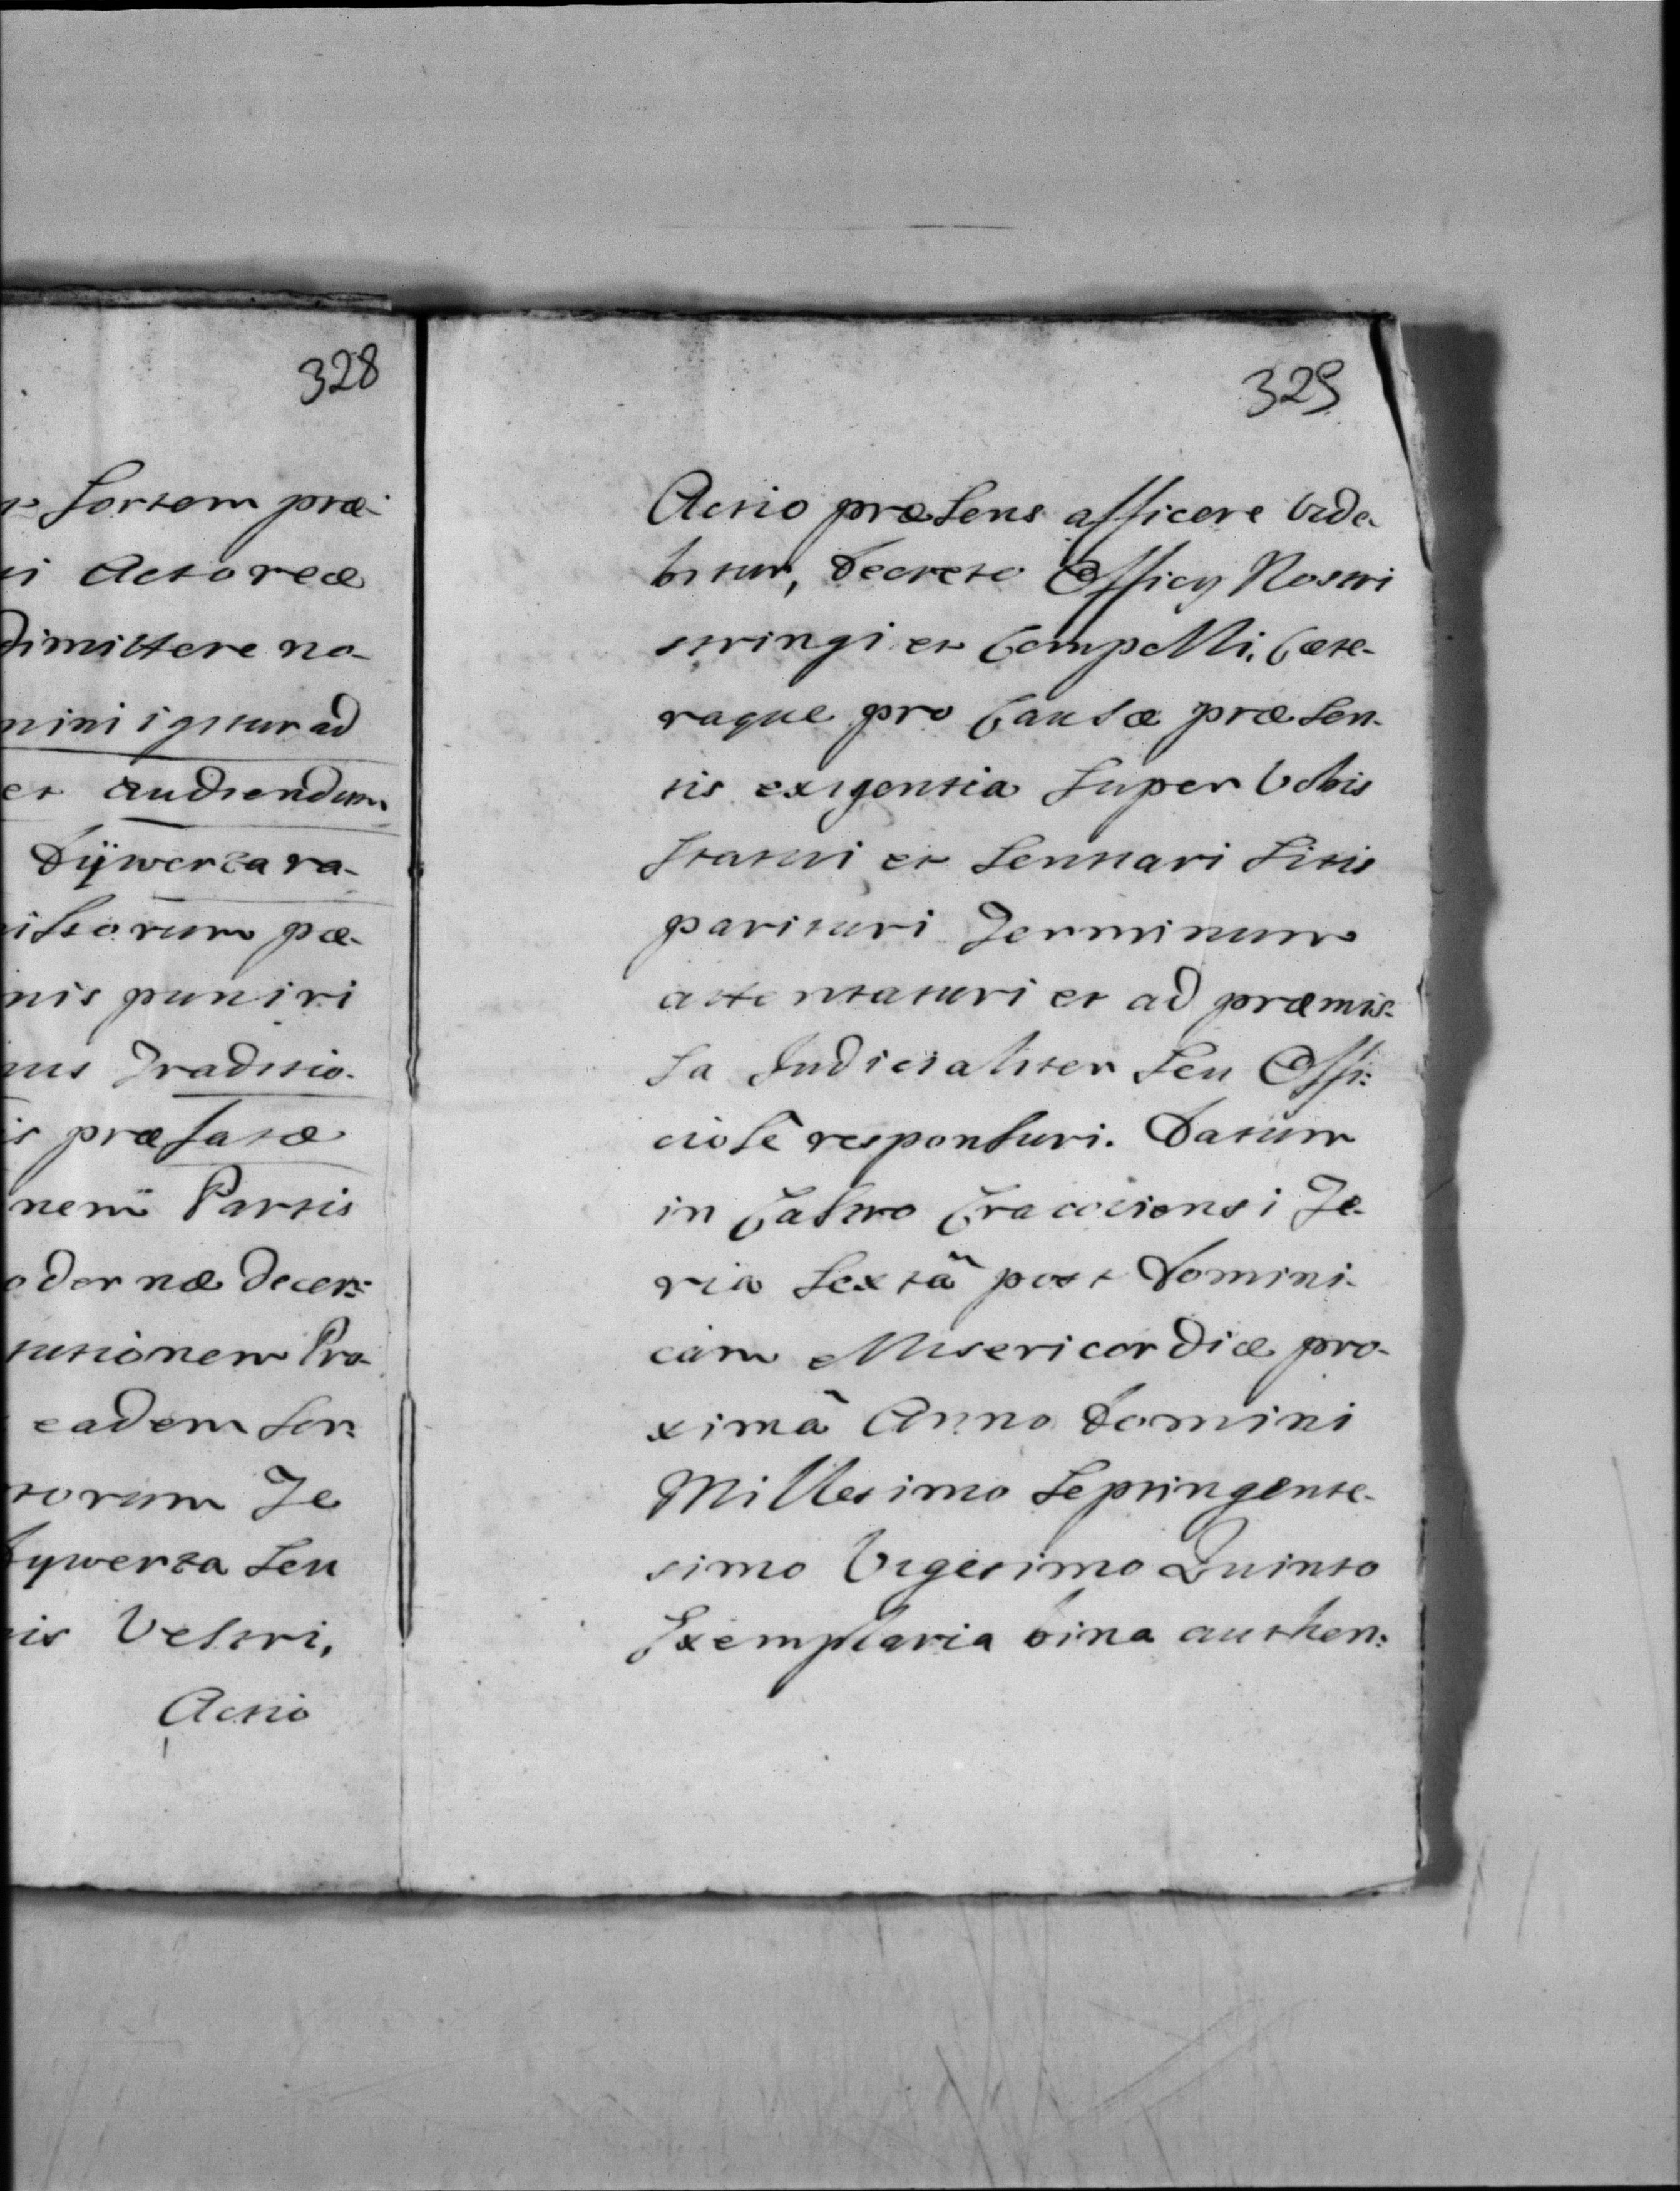 328
Sortem præ-
i Actoreæ
dimittere no-
mini igitur ad
et audiendum
Dÿwerza ra-
istorum pæ-
nis puniri
Traditio-
præfatæ
nem Partis
decer:
tutionem Pro-
eadem Sor:
torum Te
Dywerza Seu
is Vestri,
Actio
329
Actio præsens afficere Vide-
bitur, Decreto Officÿ Nostri
stringi et Compelli. Cæte-
raque pro Causæ præsen-
tis exigentia Super Vobis
Statui et Sentiari Sitis
parituri Terminum
attentaturi et ad præmis-
sa Judicialiter Seu Offi:
ciose responsuri. Datum
in Castro Cracoviensi Fe-
ria Sextâ post Domini-
cam Misericordiæ pro-
ximâ Anno Domini
Millesimo Septingente-
simo Vigesimo Quinto
Exemplaria bina authen: